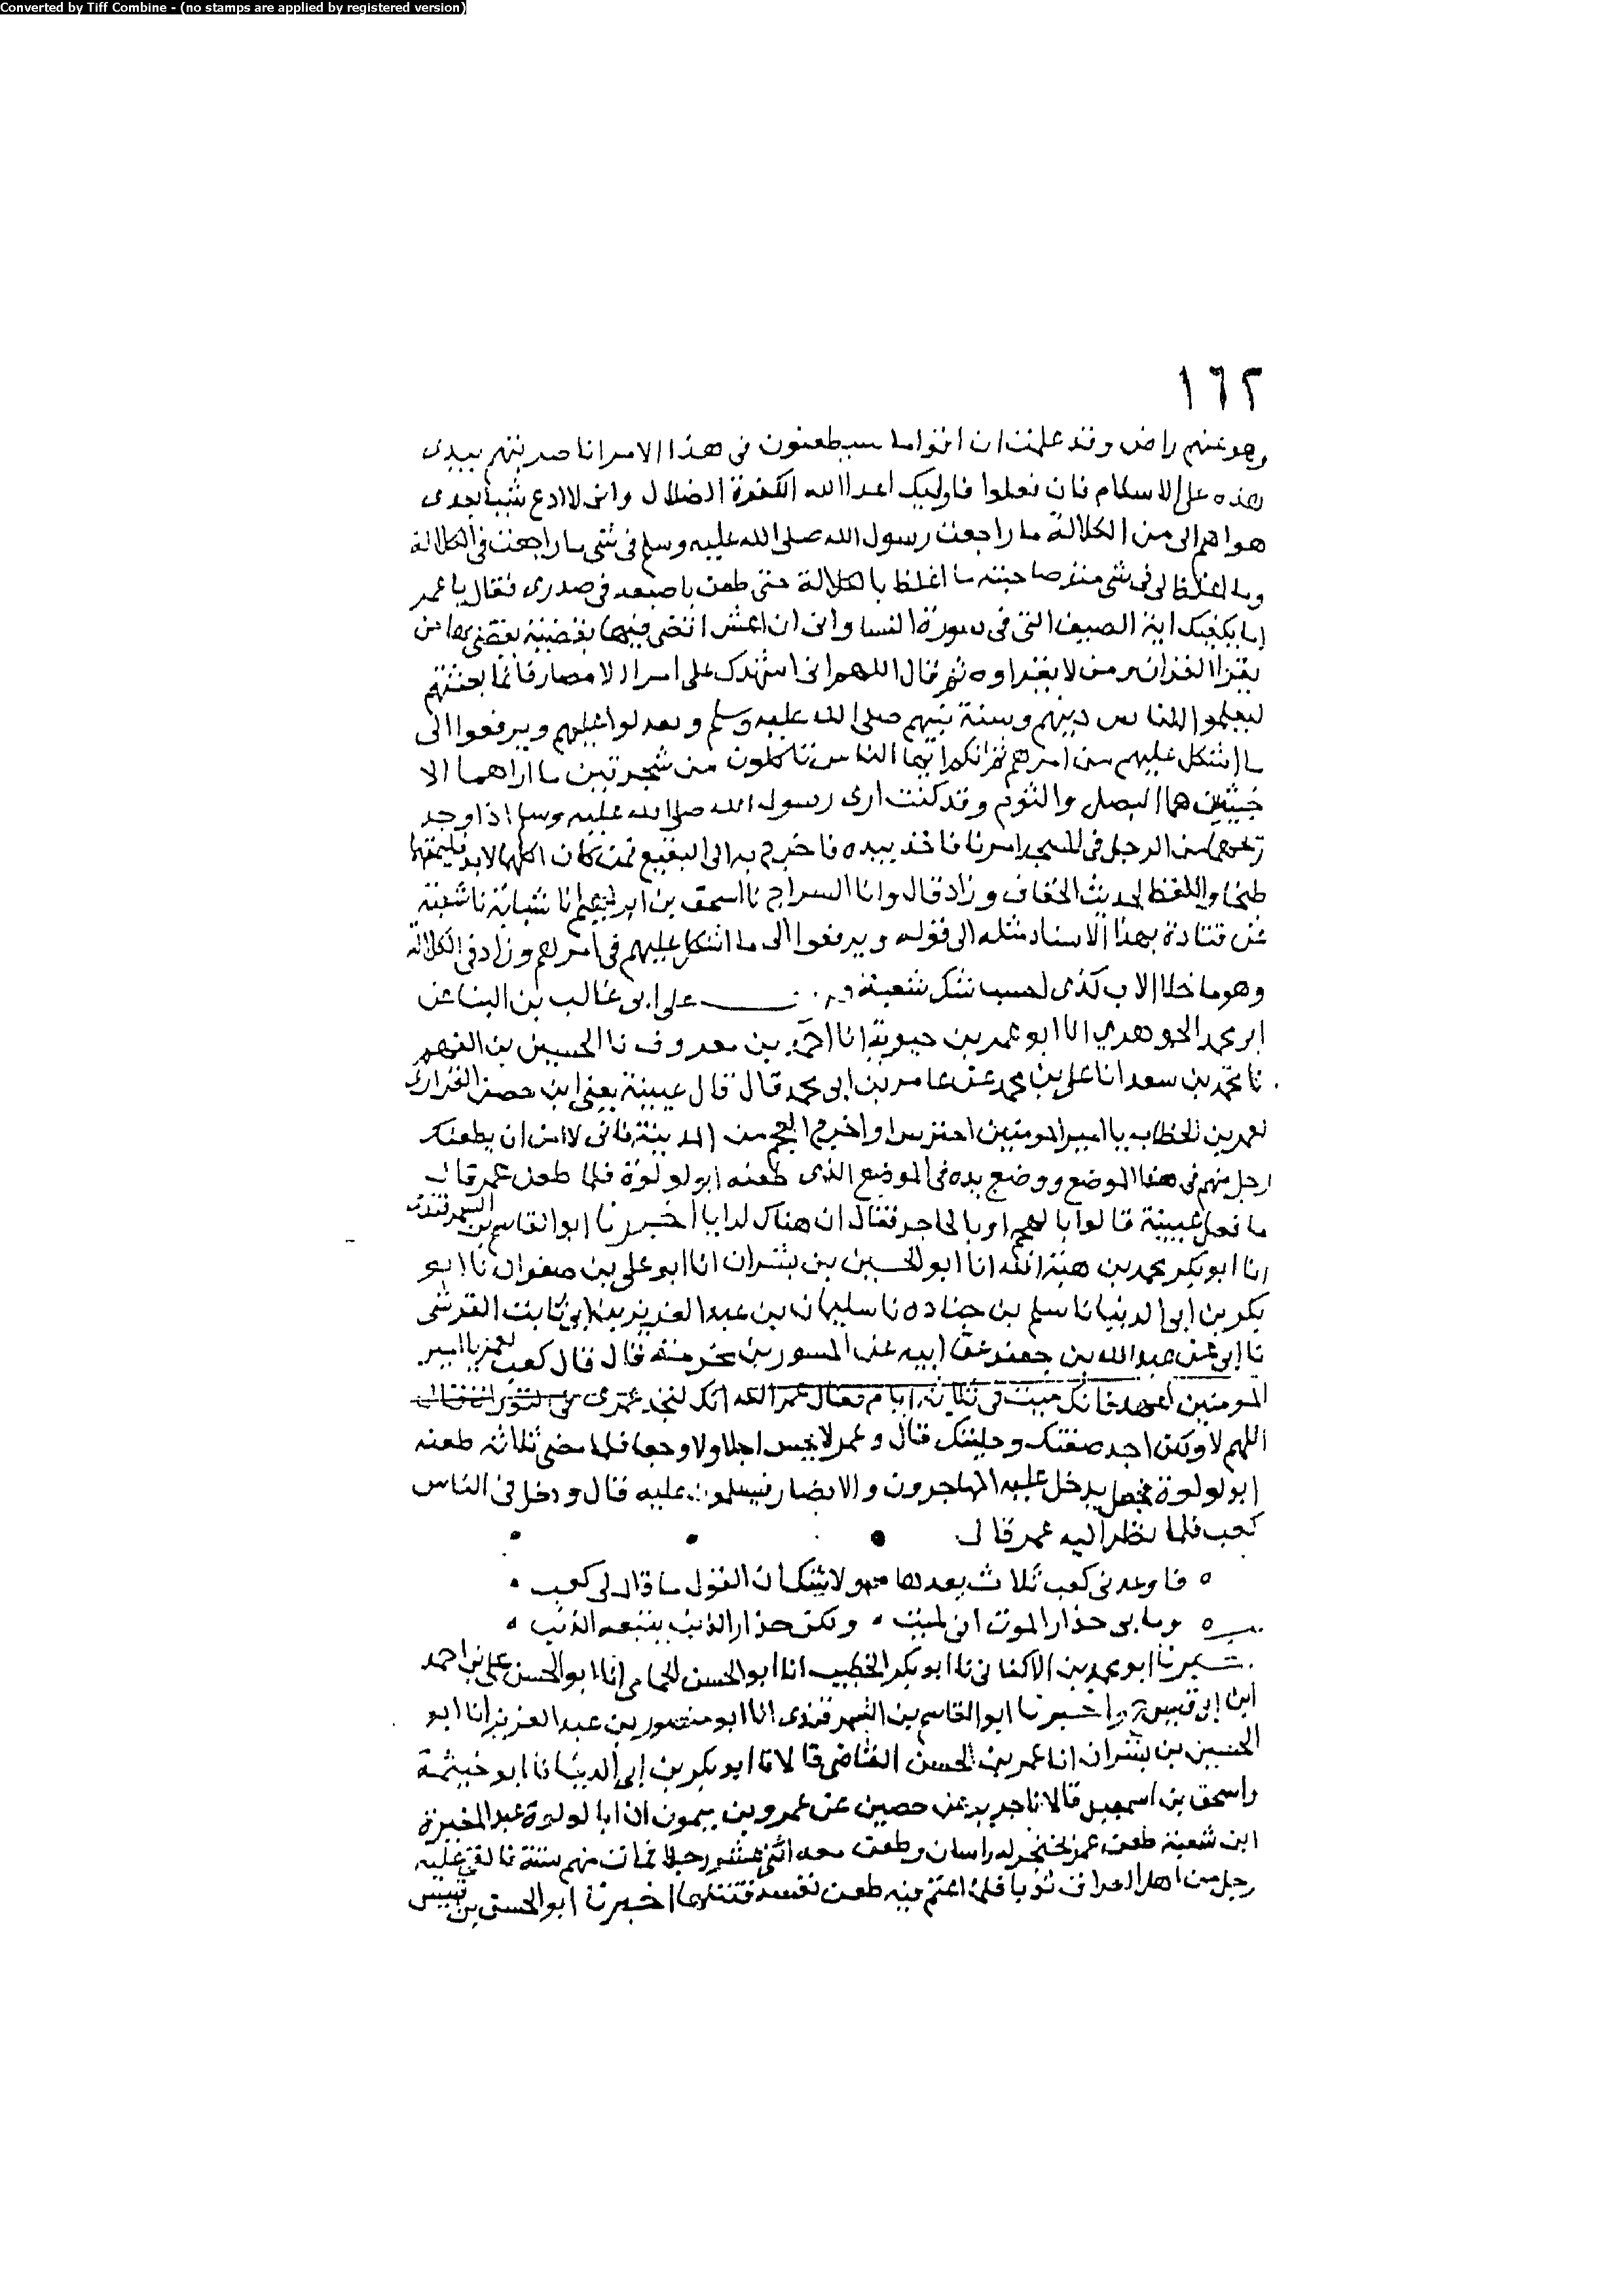 Converted by Tiff Combine - (no stamps are applied by registered version)
١٦٢
وهو عنهم راض وقد علمت ان اقواما سيطعنون فى هذا الامر انا ضربتهم بيدى
هذه على الاسلام فان فعلوا فاوليك اعدا الله الكفرة الضلال وانى لا ادع شيا بعدى
هو اهم الى من الكلالة ما راجعت رسول الله صلى الله عليه وسلم فى شى ما راجعت فى الكلالة
وما اغلظ لى فى شى منذ صاحبته ما اغلظ بالكلالة حتى طعن باصبعه فى صدرى فقال يا عمر
اما يكفيك اية الصيف التى فى سورة النسا وانى ان اعش اقضى فيها بقضية يقضى بها من
يقرا القران ومن لا يقراوه ثم قال اللهم انى اشهدك على امرا الامصار فانما بعثتهم
ليعلموا الناس دينهم وسنة نبيهم صلى الله عليه وسلم ويعدلوا عليهم ويرفعوا الى
ما اشكل عليهم من امرهم ثم انكم ايها الناس تاكلون من شجرتين ما اراهما الا
خبيثتين هما البصل والثوم وقد كنت ارى رسول الله صلى الله عليه وسلم اذا وجد
ريحهما من الرجل فى المسجد امر به فاخذ بيده فاخرج به الى البقيع فمن كان اكلهما لا بد فليمتهما
طبخا واللفظ لحديث الخفاف وزاد قال وانا السراج نا اسحق بن ابرهيم انا شبابة نا شعبة
عن قتادة بهذا الاسناد مثله الى قوله ويرفعوا الى ما اشكل عليهم فى امرهم وزاد فى الكلالة
وهو ما خلا الاب كذى احسب شك شعبة على ابى غالب بن البنا عن
ابى محمد الجوهرى انا ابو عمر بن حيوية انا احمد بن معروف نا الحسين بن الفهم
نا محمد بن سعد انا على بن محمد عن عامر بن ابى محمد قال قال عيينة يعنى ابن حصن الفزارى
لعمر بن الخطاب يا امير المومنين احترس او اخرج العجم من المدينة فانى لا امن ان يطعنك
رجل منهم فى هذا الموضع ووضع يده فى الموضع الذى طعنه ابو لولوة فلما طعن عمر قال
ما فعل عيينة قالوا بالهجم او بالحاجر فقال ان هناك لرايا اخبرنا ابو القاسم بن السمرقندى
انا ابو بكر محمد بن هبة الله انا ابو الحسين بن بشران انا ابو على بن صفوان نا ابو
بكر بن ابى الدنيا نا سلم بن جناده نا سليمان بن عبد العزيز بن ابى ثابت القرشى
نا ابى عن عبد الله بن جعفر عن ابيه عن المسور بن مخرمة قال قال كعب لعمر يا امير
المومنين اعهد فانك ميت فى ثلاثة ايام فقال عمر الله انك لتجد عمر فى التوراة فقال
اللهم لا ولكن اجد صفتك وحليتك قال وعمر لا يحس اجلا ولا وجعا فلما مضى ثلاث طعنه
ابو لولوة فجعل يدخل عليه المهاجرون والانصار فيسلمون عليه قال ودخل فى الناس
كعب فلما نظر اليه عمر قال
فاوعدنى كعب ثلاث يعدها ولا شك ان القول ما قال لى كعب
وما بى حذار الموت انى لميت ولكن حذار الذنب يتبعه الذنب
اخبرنا ابو محمد بن الاكفانى نا ابو بكر الخطيب انا ابو الحسن الحمامى انا ابو الحسن على بن احمد
ابن ابى قيس واخبرنا ابو القاسم بن السمرقندى انا ابو منصور بن عبد العزيز انا ابو
الحسين بن بشران انا عمر بن الحسن القاضى قالا نا ابو بكر بن ابى الدنيا نا ابو خيثمة
واسحق بن اسمعيل قالا نا جرير عن حصين عن عمرو بن ميمون ان ابا لولوة عبد المغيرة
ابن شعبة طعن عمر بخنجر له راسان وطعن معه اثنى عشر رجلا فمات منهم ستة فالقى عليه
رجل من اهل العراق ثوبا فلما اغتم فيه طعن نفسه فقتلها اخبرنا ابو الحسن بن قبيس